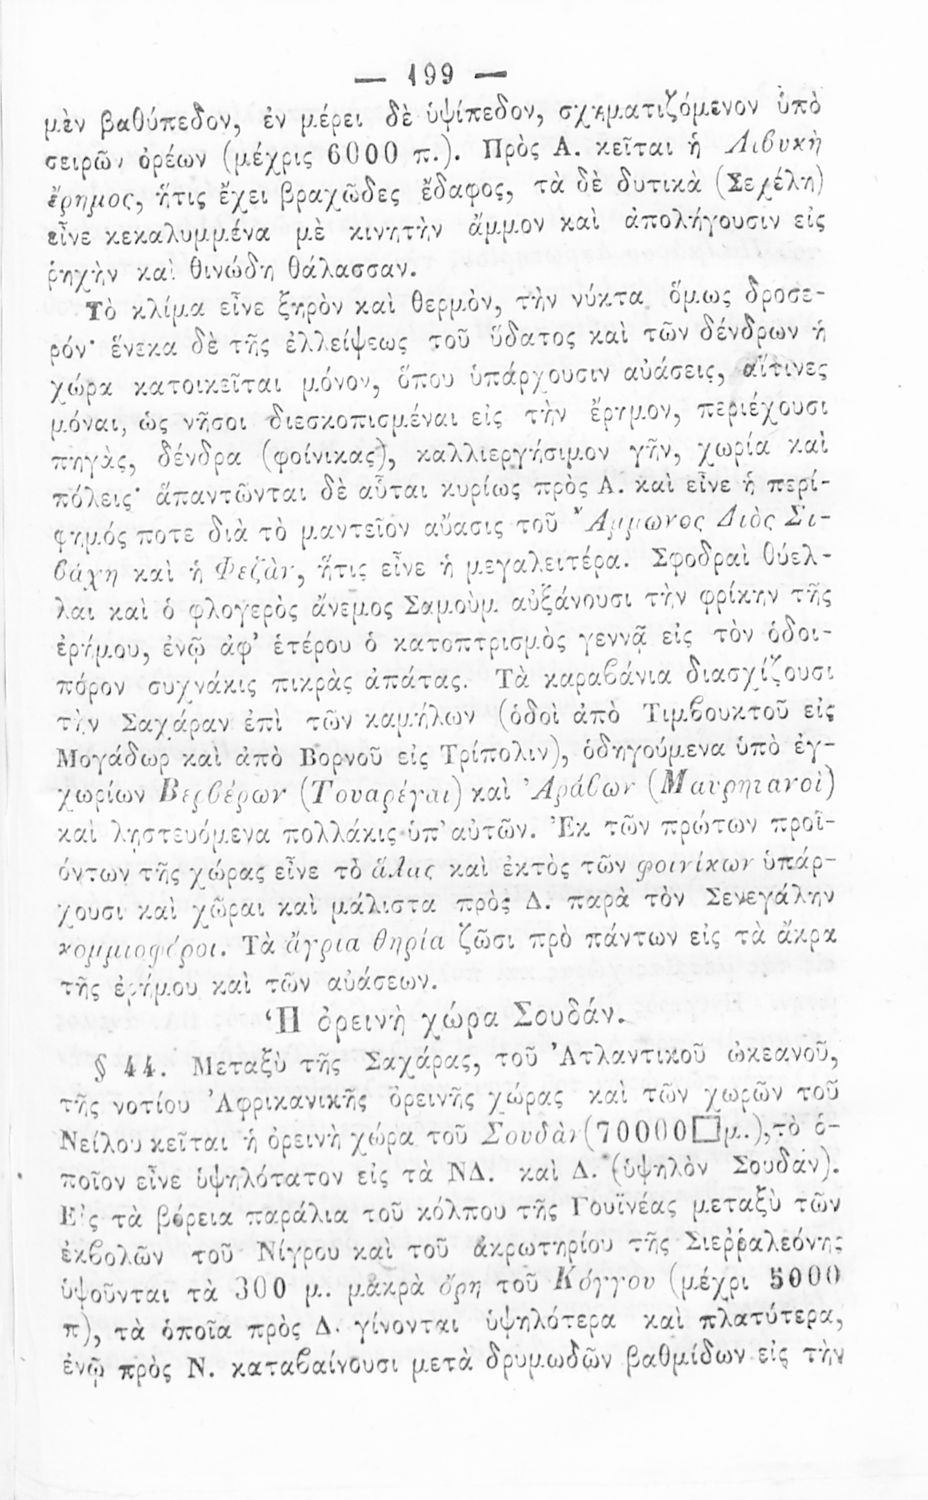 — 199 —
μὲν βαθύπεδον, ἐν μέρει δὲ ὑψίπεδον, σχηματιζόμενον ὑπὸ
σειρῶν ὀρέων (μέχρις 6000 π.). Πρὸς Α. κεῖται ἡ Λιβυκὴ
ἔρημος, ἥτις ἔχει βραχῶδες ἔδαφος, τὰ δὲ δυτικὰ (Σεχέλη)
εἶνε κεκαλυμμένα μὲ κινητὴν ἄμμον καὶ ἀπολήγουσιν εἰς
ῥηχὴν καὶ θινώδη θάλασσαν.
Τὸ κλίμα εἶνε ξηρὸν καὶ θερμὸν, τὴν νύκτα ὅμως δροσε-
ρόν· ἕνεκα δὲ τῆς ἐλλείψεως τοῦ ὕδατος καὶ τῶν δένδρων ἡ
χώρα κατοικεῖται μόνον, ὅπου ὑπάρχουσιν αὐάσεις, αἵτινες
μόναι, ὡς νῆσοι διεσκοπισμέναι εἰς τὴν ἔρημον, περιέχουσι
πηγὰς, δένδρα (φοίνικας), καλλιεργήσιμον γῆν, χωρία καὶ
πόλεις· ἅπαντῶνται δὲ αὗται κυρίως πρὸς Α. καὶ εἶνε ἡ περί-
φημός ποτε διὰ τὸ μαντεῖον αὔασις τοῦ Ἄμμωνος Διὸς Σι-
βάχη καὶ ἡ Φεζὰν, ἥτις εἶνε ἡ μεγαλειτέρα. Σφοδραὶ θύελ-
λαι καὶ ὁ φλογερὸς ἄνεμος Σαμοὺμ αὐξάνουσι τὴν φρίκην τῆς
ἐρήμου, ἐνῷ ἀφ' ἑτέρου ὁ κατοπτρισμὸς γεννᾷ εἰς τὸν ὁδοι-
πόρον συχνάκις πικρὰς ἀπάτας. Τὰ καραβάνια διασχίζουσι
τὴν Σαχάραν ἐπὶ τῶν καμήλων (ὁδοὶ ἀπὸ Τιμβουκτοῦ εἰς
Μογάδωρ καὶ ἀπὸ Βορνοῦ εἰς Τρίπολιν), ὁδηγούμενα ὑπὸ ἐγ-
χωρίων Βερβέρων (Τουαρέγαι) καὶ Ἀράβων (Μαυρητανοὶ)
καὶ λῃστευόμενα πολλάκις ὑπ' αὐτῶν. Ἐκ τῶν πρώτων προϊ-
όντων τῆς χώρας εἶνε τὸ ἅλας καὶ ἐκτὸς τῶν φοινίκων ὑπάρ-
χουσι καὶ χῶραι καὶ μάλιστα πρὸς Δ. παρὰ τὸν Σενεγάλην
κομμιοφόροι. Τὰ ἄγρια θηρία ζῶσι πρὸ πάντων εἰς τὰ ἄκρα
τῆς ἐρήμου καὶ τῶν αὐάσεων.
Ἡ ὀρεινὴ χώρα Σουδάν.
§ 44. Μεταξὺ τῆς Σαχάρας, τοῦ Ἀτλαντικοῦ ὠκεανοῦ,
τῆς νοτίου Ἀφρικανικῆς ὀρεινῆς χώρας καὶ τῶν χωρῶν τοῦ
Νείλου κεῖται ἡ ὀρεινὴ χώρα τοῦ Σουδὰν (70000□μ.), τὸ ὁ-
ποῖον εἶνε ὑψηλότατον εἰς τὰ ΝΔ. καὶ Δ. (ὑψηλὸν Σουδάν).
Εἰς τὰ βόρεια παράλια τοῦ κόλπου τῆς Γουϊνέας μεταξὺ τῶν
ἐκβολῶν τοῦ Νίγρου καὶ τοῦ ἀκρωτηρίου τῆς Σιεῤῥαλεόνης
ὑψοῦνται τὰ 300 μ. μακρὰ ὄρη τοῦ Κόγγου (μέχρι 5000
π), τὰ ὁποῖα πρὸς Δ. γίνονται ὑψηλότερα καὶ πλατύτερα,
ἐνῷ πρὸς Ν. καταβαίνουσι μετὰ δρυμωδῶν βαθμίδων εἰς τὴν